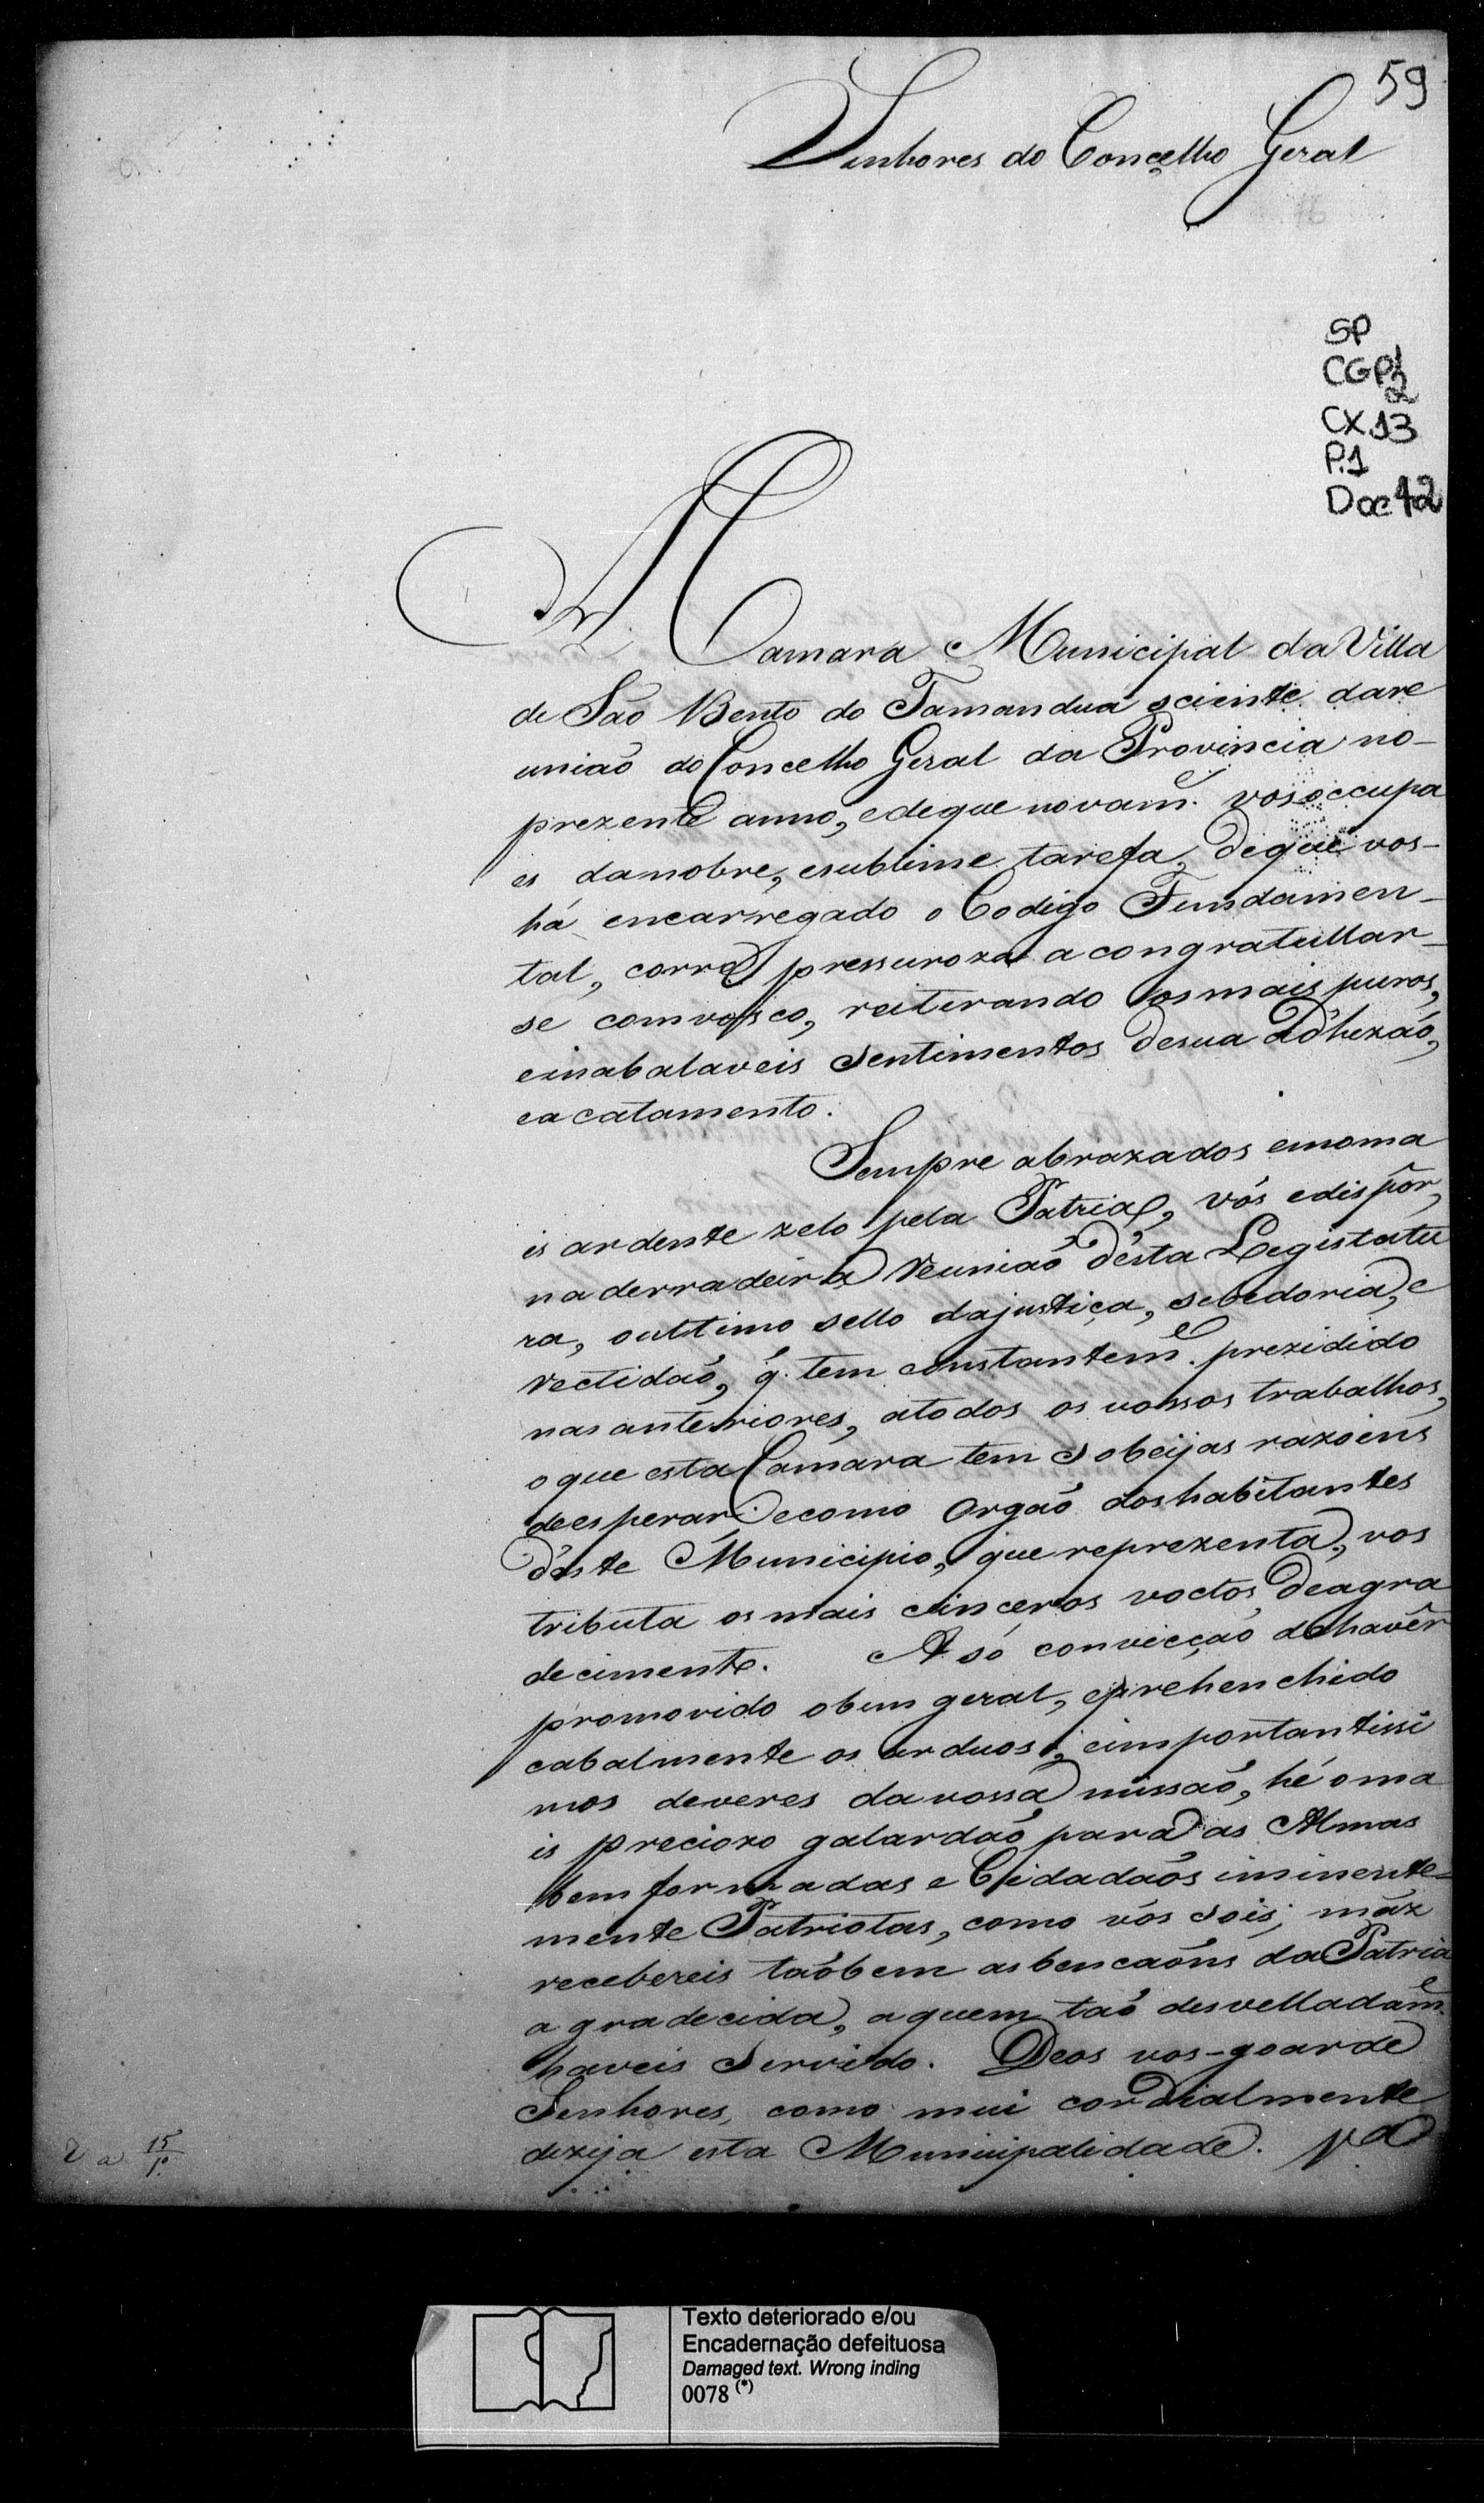 59
Senhores do Concelho Geral
SP
CGP 1/2
CX.13
P.1
Doc 42
A Camara Municipal da Villa
de Saõ Bento do Tamanduá sciente dare
uniaõ do Concelho Geral da Provincia no-
prezente anno, edeque novam.e vos occupa
es danobre, esublime tarefa, deque vos-
há encarregado o Codigo Fundamen-
tal, corre pressuroza a congratullar-
se comvosco, reiterando os mais puros,
einabalaveis sentimentos desua Adhezaõ,
eacatamento.
Sempre abrazados emoma
is ardente zelo pela Patria, vós edispôr,
naderradeira Reuniaõ désta Legislatu
ra, oultimo sello dajustiça, sebedoria, e
rectidaõ, q. tem constantem.e prezidido
nas anteriores, atodos os vossos trabalhos,
oque esta Camara tem sobeijas razoens
deesperar: ecomo Orgaõ doshabitantes
déste Municipio, que reprezenta, vos
tributa os mais sinceros voctos deagra
decimento. A só convicçaõ dehavêr
promovido obem geral, eprehenchido
cabalmente os arduos, eimportantissi
mos deveres davossa missaõ, hé oma
is preciozo galardaõ para as Almas
bem formadas e Cidadaõs iminente-
mente Patriotas, como vós sois; máz
recebereis taõbem asbencaõns da Patria
agradecida, aquem taõ desvelladam.e
haveis servido. Deos vos-goarde
Senhores, como mui cordialmente
dezeja esta Municipalidade. V.a
2 a 15/1.º
Texto deteriorado e/ou
Encadernação defeituosa
Damaged text. Wrong inding
0078 (*)